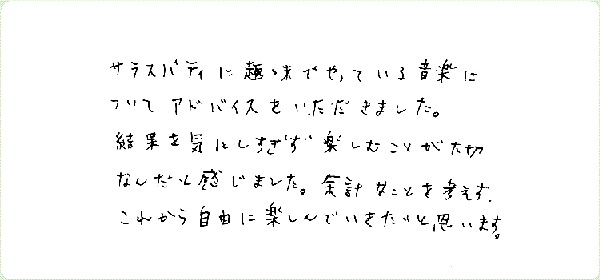 サラスバティに趣味でやっている音楽に
ついてアドバイスをいただきました。
結果を気にしすぎず楽しむことが大切
なんだと感じました。余計なことを考えず、
これから自由に楽しんでいきたいと思います。